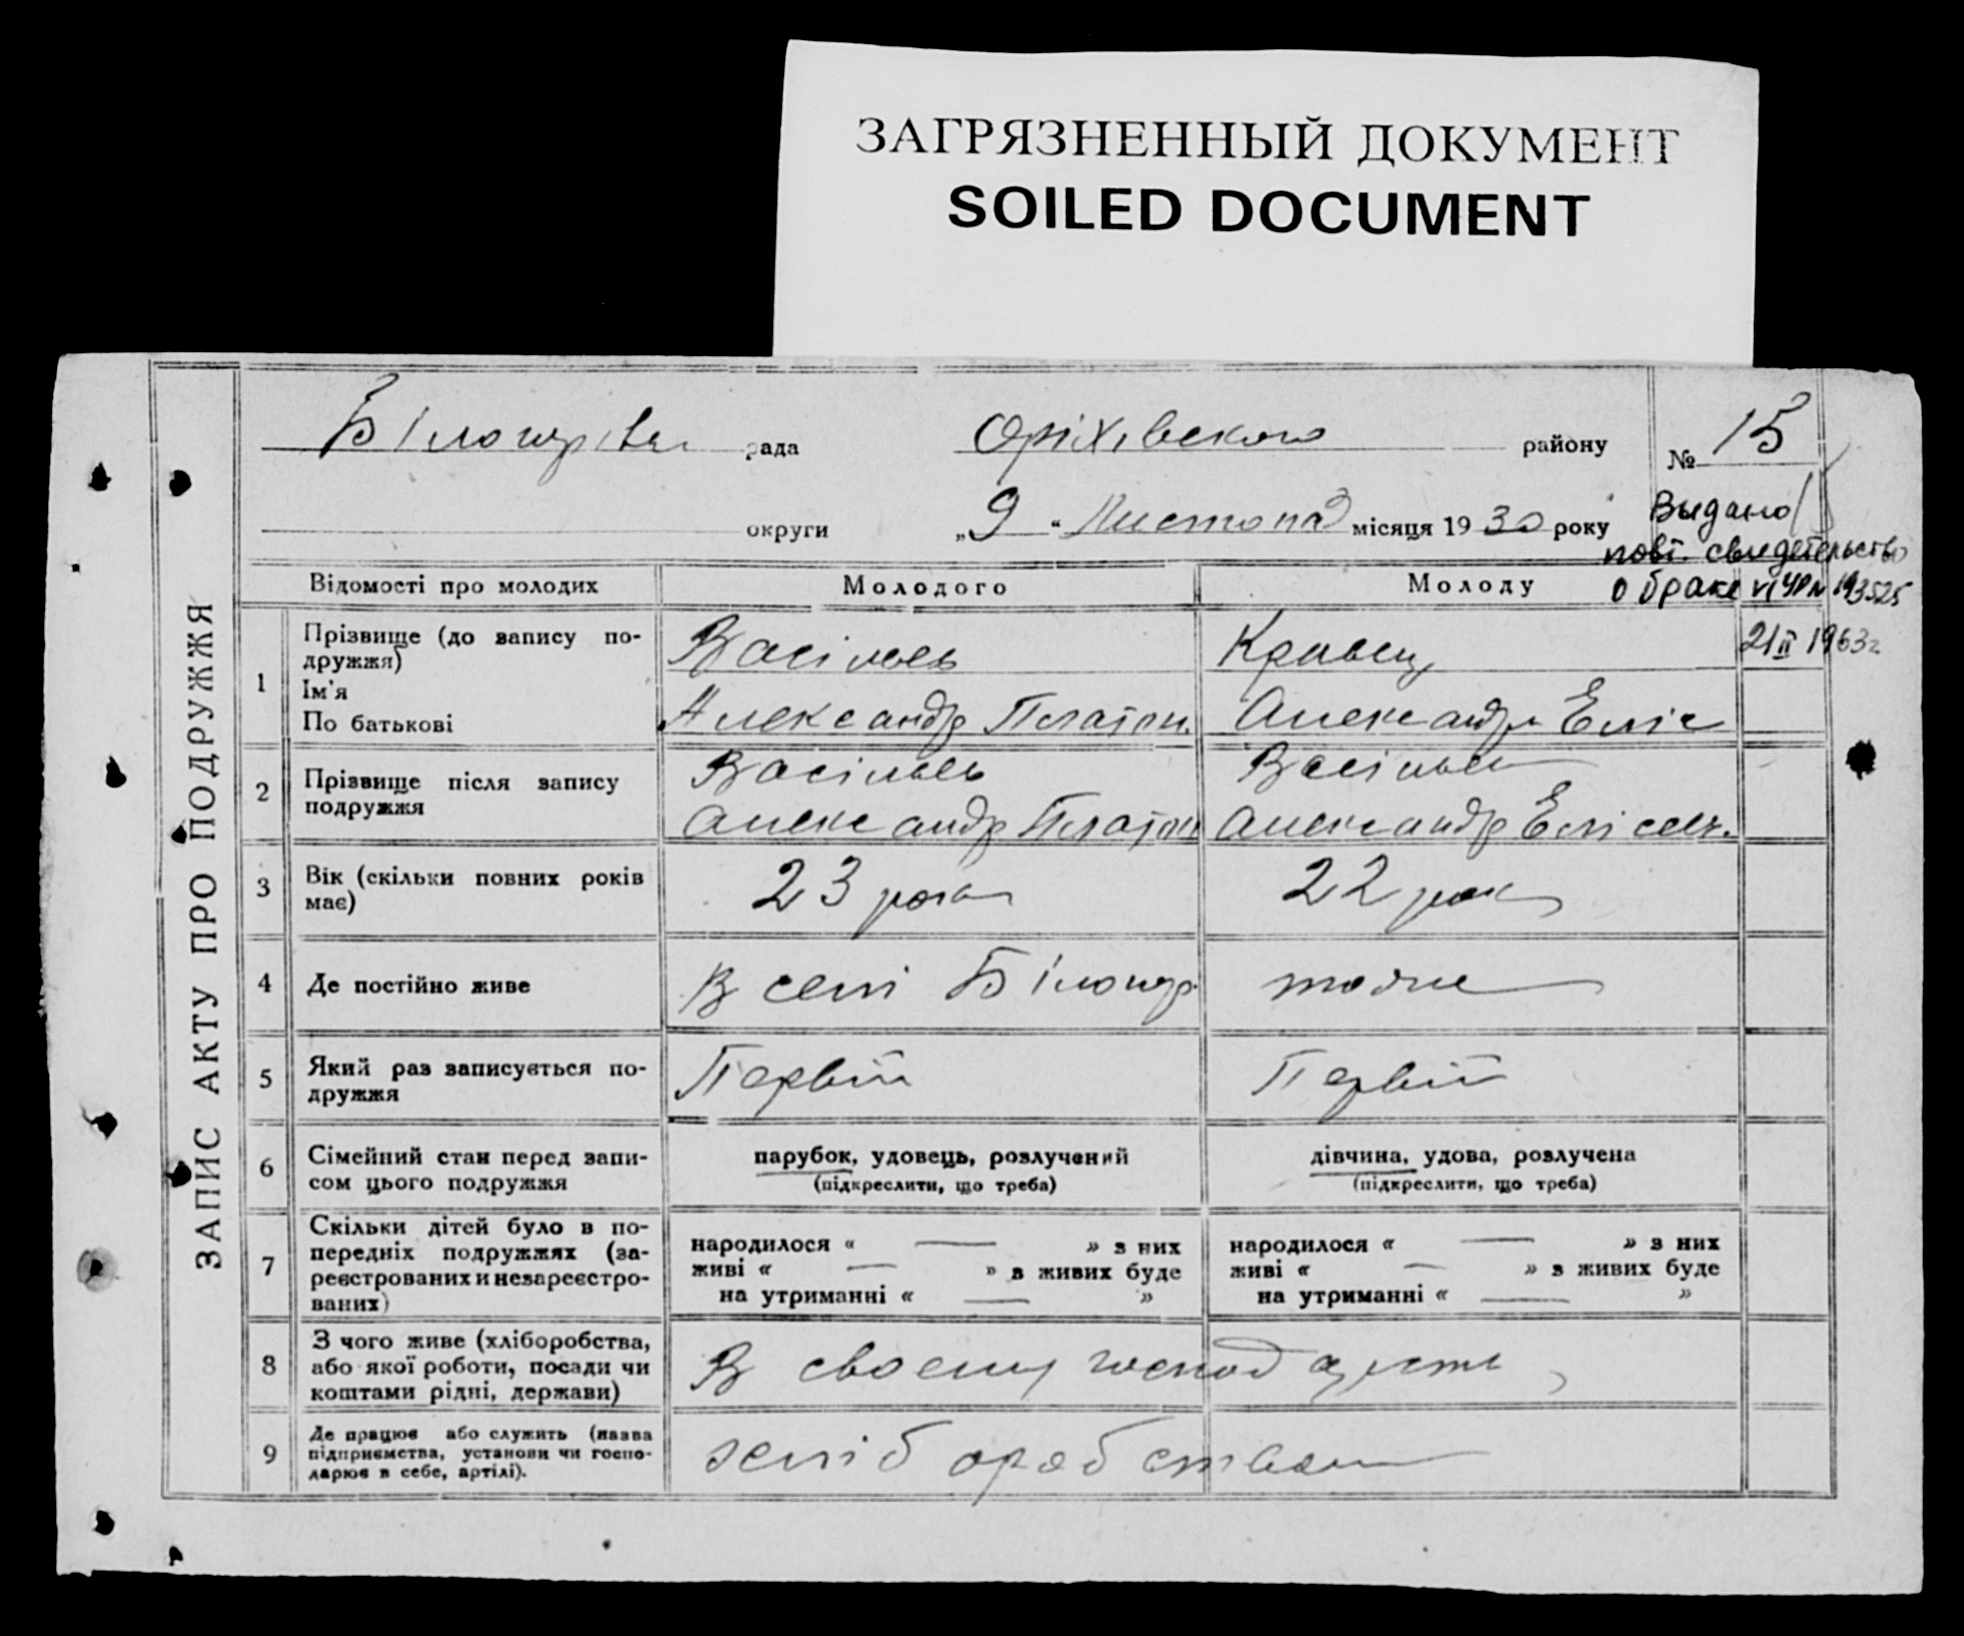 ЗАГРЯЗНЕННЫЙ ДОКУМЕНТ
SOILED DOCUMENT
ЗАПИС АКТУ ПРО ПОДРУЖЖЯ
рада Оріхівського району № 15
округи „ 9 “ Листопад місяця 19 30 року
Выдано
повт. свидетельство
о браке VI УР № 193525
21 II 1963 г
Відомості про молодих Молодого Молоду
1 Прізвище (до запису по-
дружжя) Васільев Кравец
Ім'я
По батькові Александр Платон. Александр Еліс
2 Прізвище після запису
подружжя Васільев Васільев
Александр Платон Александр Елісеев.
3 Вік (скільки повних років
має) 23 рока 22 рок
4 Де постійно живе В селі Білогор тоже
5 Який раз записується по-
дружжя Первій Первій
6 Сімейний стан перед запи-
сом цього подружжя
парубок, удовець, розлучений
(підкреслити, що треба)
дівчина, удова, розлучена
(підкреслити, що треба)
7 Скільки дітей було в по-
передніх подружжях (за-
реєстрованих и незареєстро-
ваних)
народилося « — » з них
живі « — » з живих буде
на утриманні « — »
народилося « — » з них
живі « — » з живих буде
на утриманні « — »
8 З чого живе (хліборобства,
або якої роботи, посади чи
коштами рідні, держави) В своему господарстві
9 Де працює або служить (назва
підприємства, установи чи госпо-
дарює в себе, артілі). хліборобством